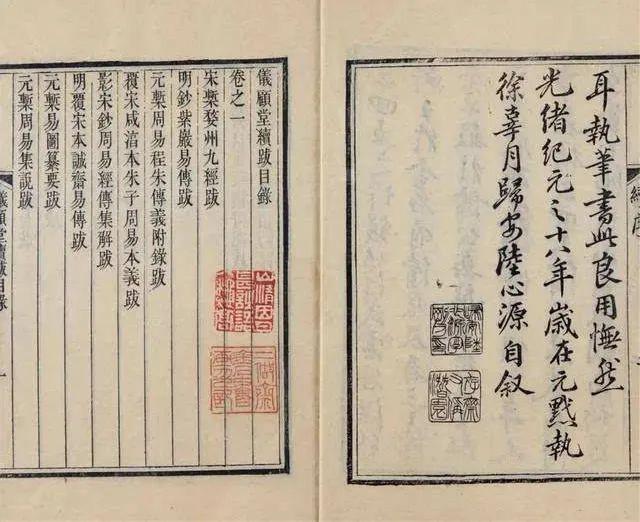 耳執筆書此良用憮然
光緒紀元之十八年歲在元黓執
徐辜月歸安陸心源自敘
儀顧堂續跋目錄
卷之一
宋槧婺州九經跋
明鈔紫巖易傳跋
元槧周易程朱傳義附錄跋
覆宋咸淳本朱子周易本義跋
影宋鈔周易經傳集解跋
明覆宋本誠齋易傳跋
元槧易圖纂要跋
元槧周易集說跋
儀顧堂續跋目錄
一